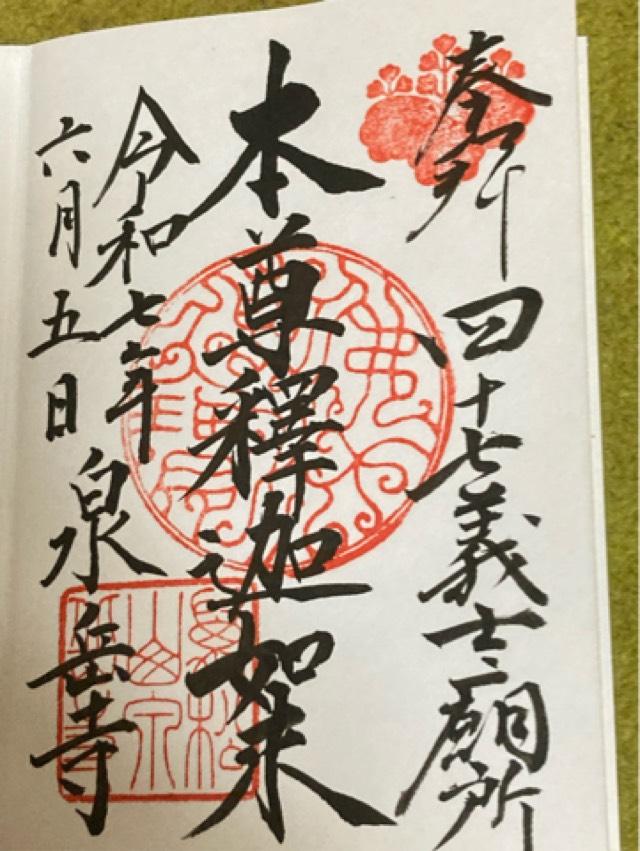 奉拝 四十七義士廟所
本尊釋迦如来
令和七年
六月五日 泉岳寺